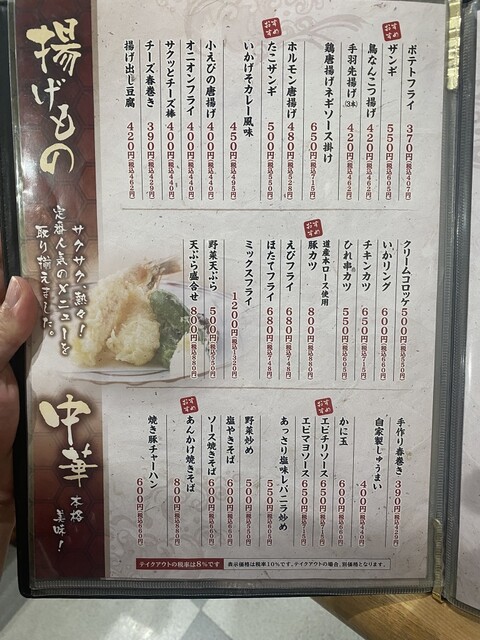 揚げもの
サクサク、熱々!
定番人気のメニューを
取り揃えました。
ポテトフライ 370円(税込407円)
おすすめ
ザンギ 550円(税込605円)
鳥なんこつ揚げ 420円(税込462円)
手羽先揚げ(3本) 420円(税込462円)
鶏唐揚げネギソース掛け 650円(税込715円)
ホルモン唐揚げ 480円(税込528円)
おすすめ
たこザンギ 500円(税込550円)
いかげそカレー風味 450円(税込495円)
小えびの唐揚げ 400円(税込440円)
オニオンフライ 400円(税込440円)
サクッとチーズ棒 400円(税込440円)
チーズ春巻き 390円(税込429円)
揚げ出し豆腐 420円(税込462円)
クリームコロッケ 500円(税込550円)
いかリング 600円(税込660円)
チキンカツ 650円(税込715円)
ひれ串カツ 550円(税込605円)
おすすめ
道産氷ロース使用
豚カツ 800円(税込880円)
えびフライ 680円(税込748円)
ほたてフライ 680円(税込748円)
ミックスフライ 1200円(税込1320円)
野菜天ぷら 500円(税込550円)
天ぷら盛合せ 800円(税込880円)
中華
本格
美味!
手作り春巻き 390円(税込429円)
自家製しゅうまい 400円(税込440円)
かに玉 600円(税込660円)
おすすめ
エビチリソース 650円(税込715円)
エビマヨソース 650円(税込715円)
あっさり塩味レバニラ炒め 550円(税込605円)
野菜炒め 500円(税込550円)
塩やきそば 600円(税込660円)
ソース焼きそば 600円(税込660円)
おすすめ
あんかけ焼きそば 800円(税込880円)
焼き豚チャーハン 600円(税込660円)
テイクアウトの税率は8%です
表示価格は税率10%です。テイクアウトの場合、別価格となります。